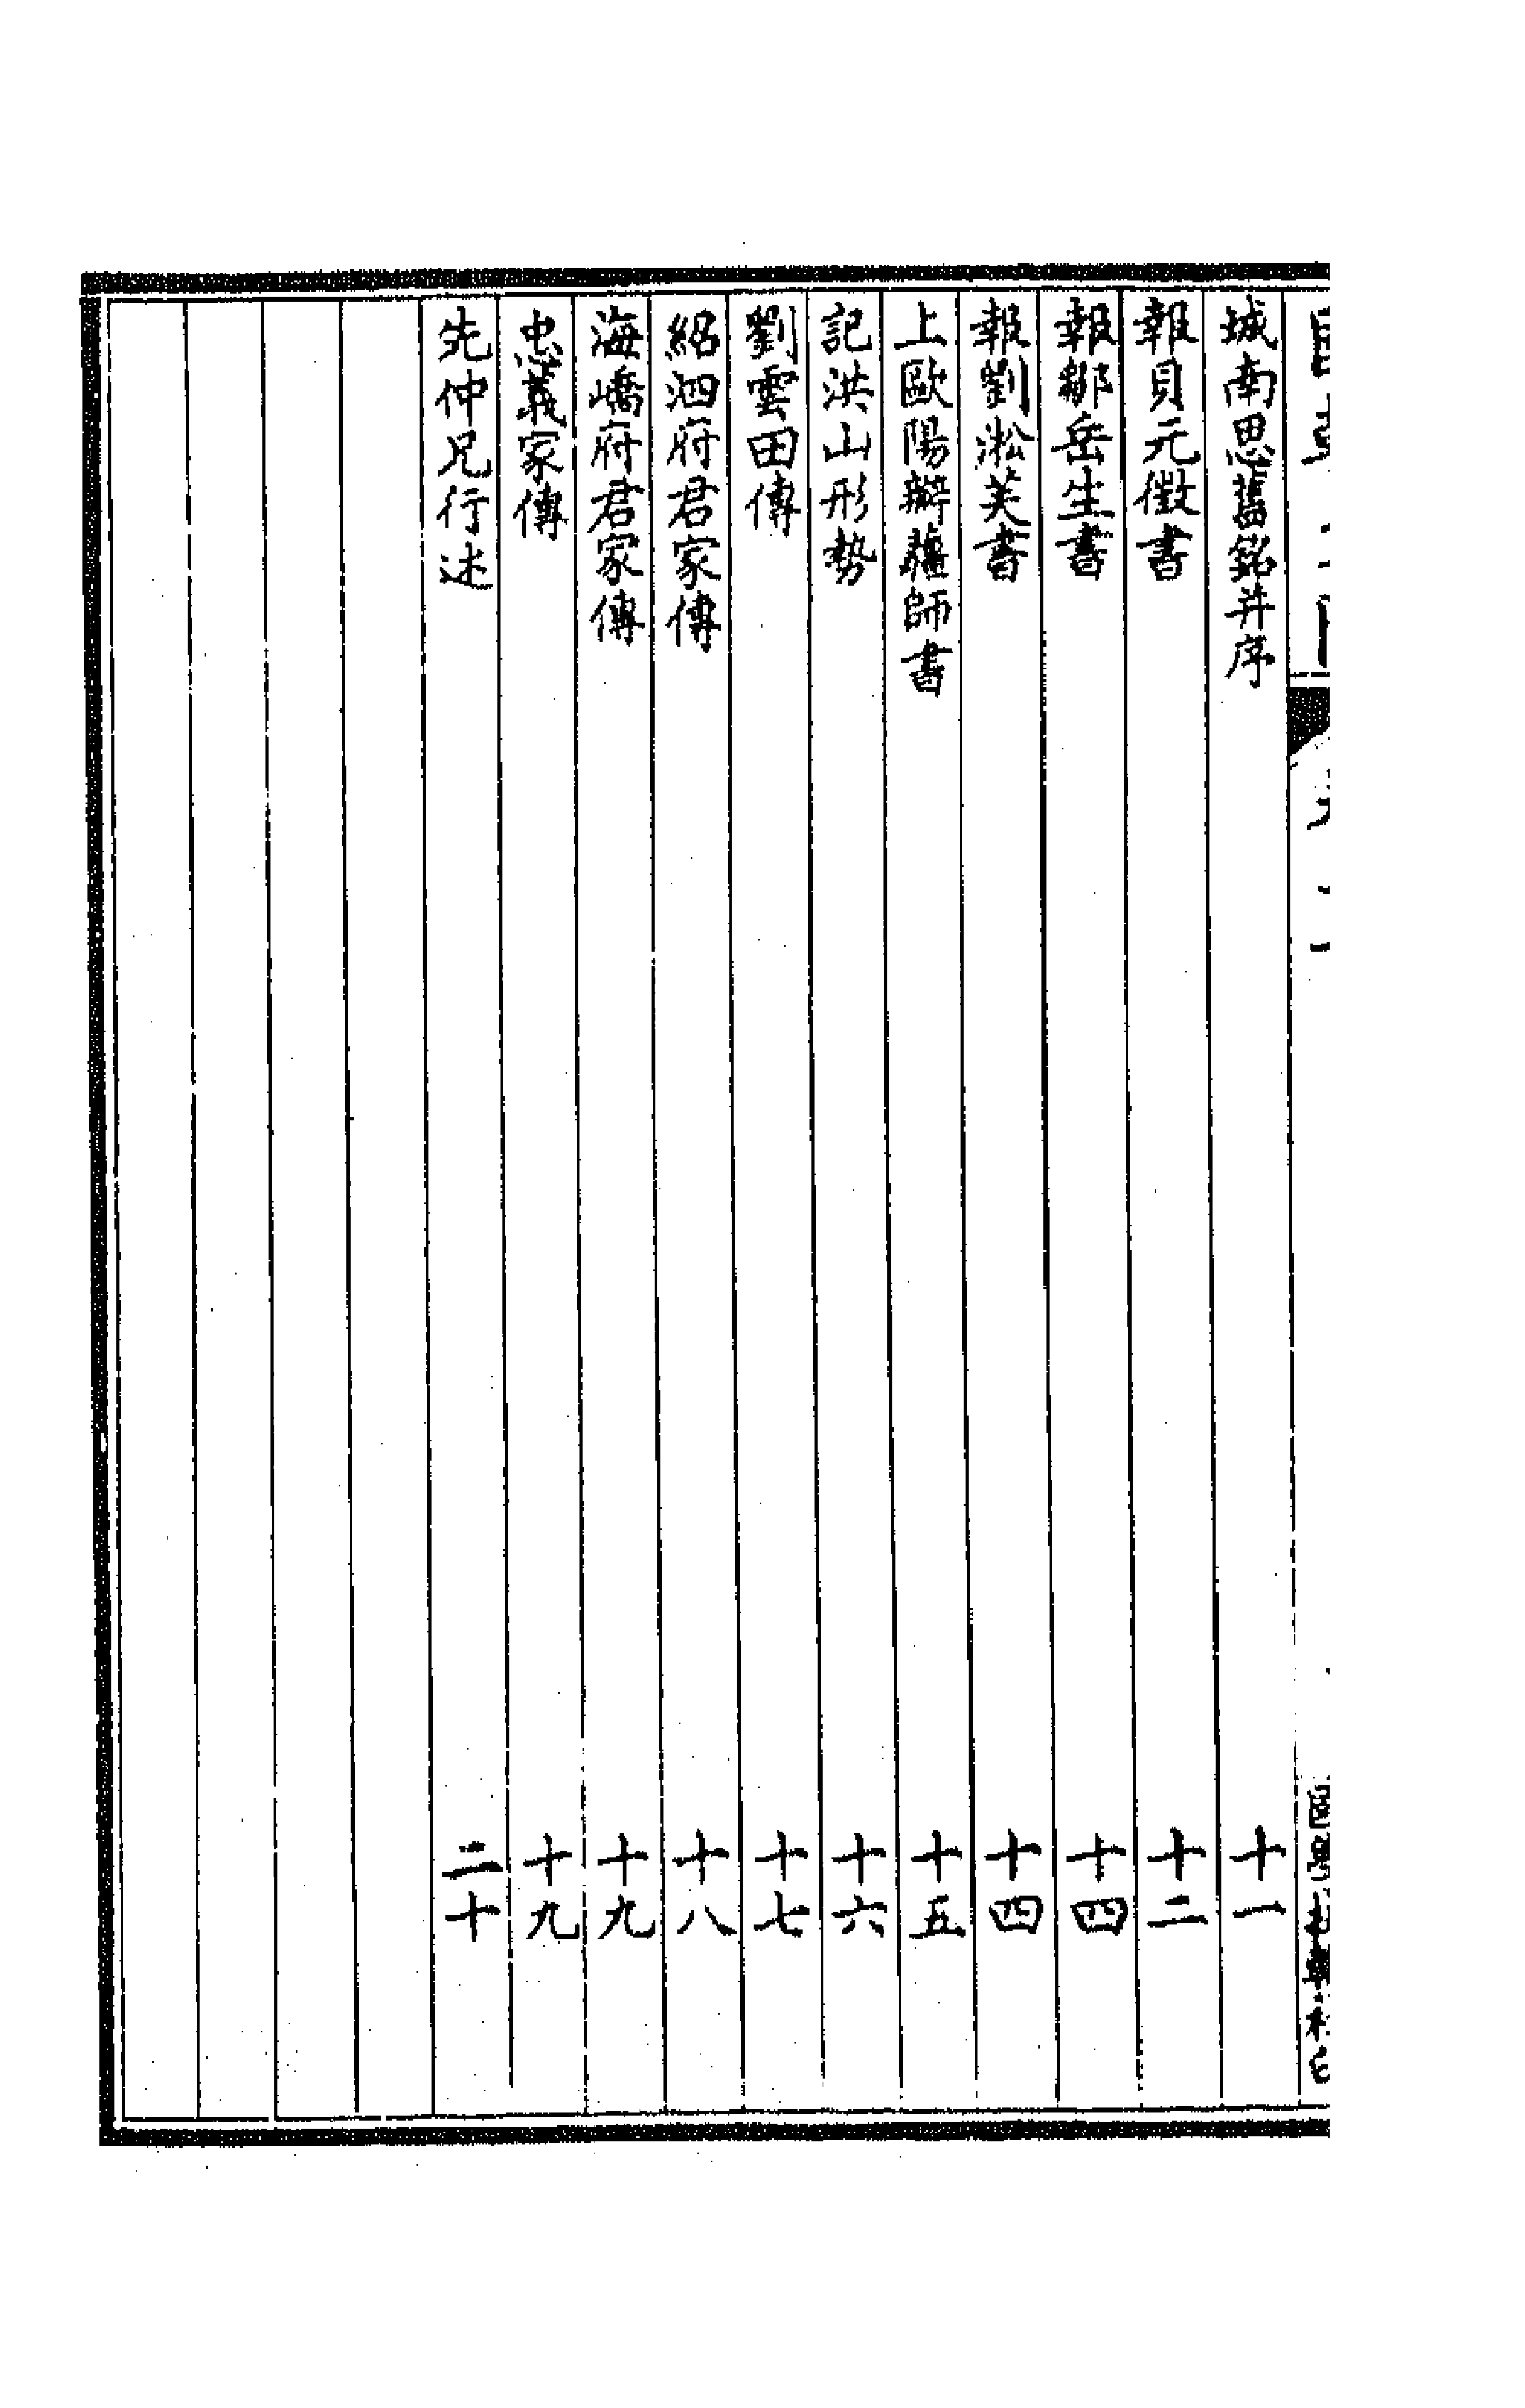 城南思舊銘并序 十一
報貝元徵書 十二
報鄒岳生書 十四
報劉淞芙書 十四
上歐陽瓣薑師書 十五
記洪山形勢 十六
劉雲田傳 十七
紹泗府君家傳 十八
海嶠府君家傳 十九
忠義家傳 十九
先仲兄行述 二十